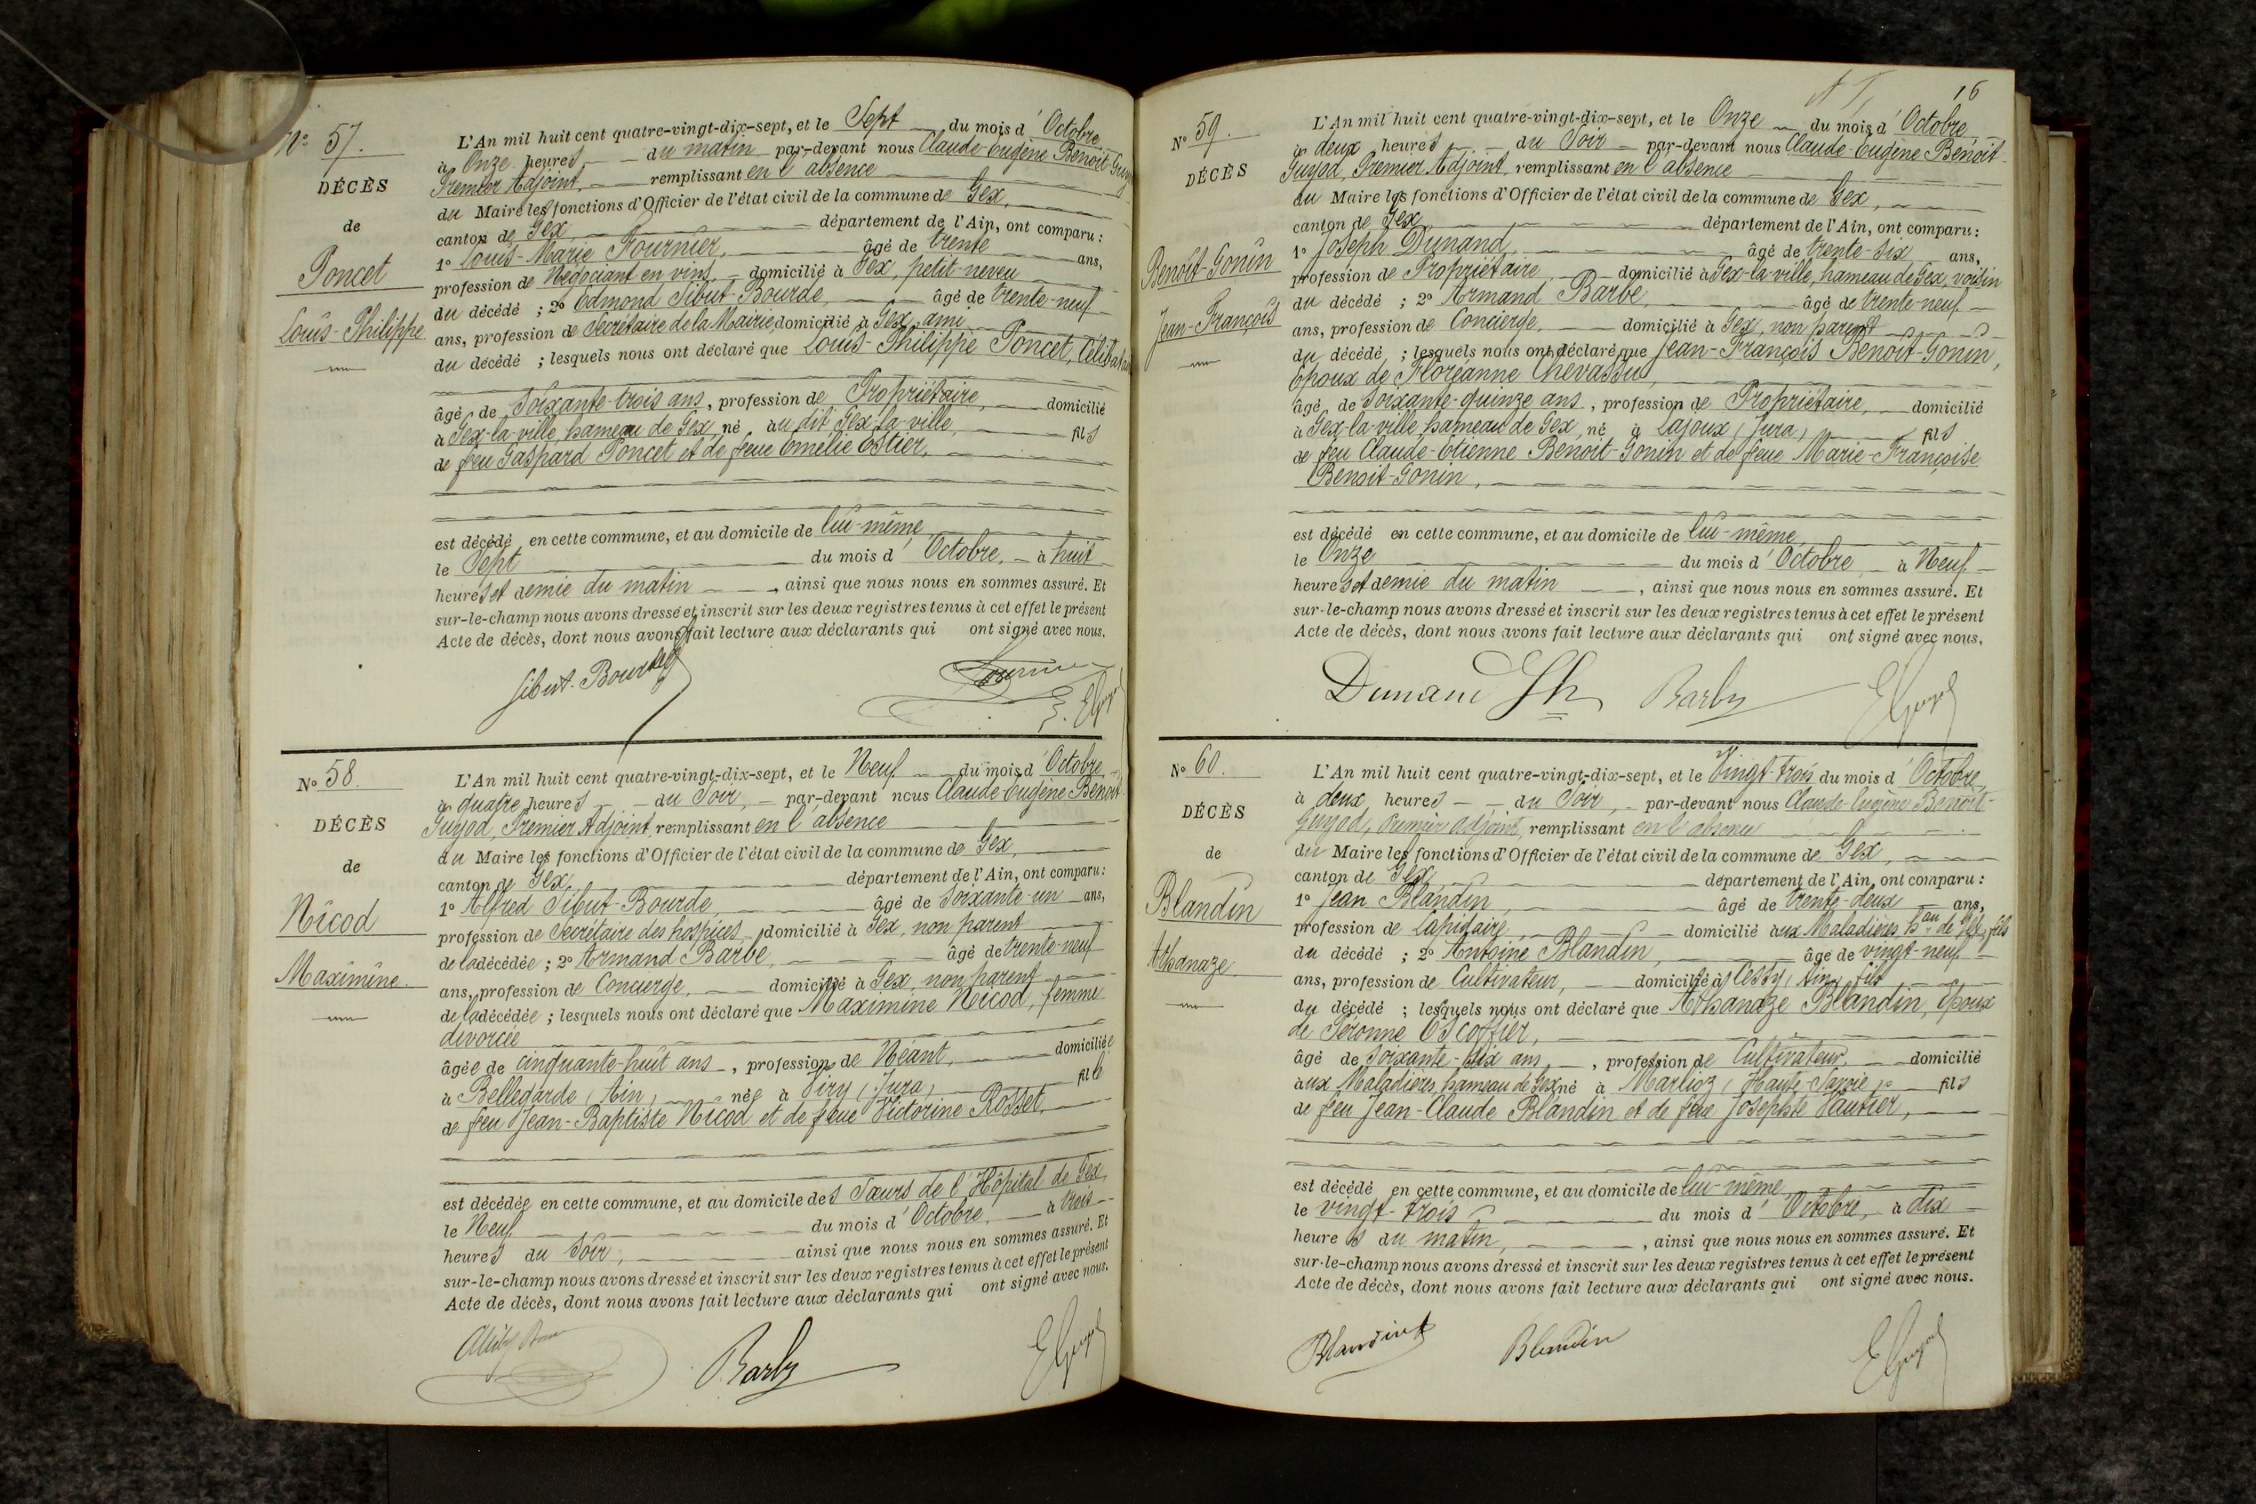 No 57.
DÉCÈS
de
Poncet
Louis-Philippe
L'An mil huit cent quatre-vingt-dix-sept, et le Sept du mois d'Octobre
à Onze heures du matin par-devant nous Claude-Eugène Benoit-Guyod
Premier Adjoint, remplissant en l'absence
du Maire les fonctions d'Officier de l'état civil de la commune de Gex,
canton de Gex, département de l'Ain, ont comparu :
1º Louis-Marie Fournier, âgé de trente ans,
profession de Négociant en vins, domicilié à Gex, petit-neveu
du décédé ; 2º Edmond Sibut-Bourde, âgé de trente-neuf
ans, profession de Secrétaire de la Mairie domicilié à Gex, ami
du décédé ; lesquels nous ont déclaré que Louis-Philippe Poncet, Célibataire
âgé de Soixante-trois ans, profession de Propriétaire, domicilié
à Gex-la-ville, hameau de Gex, né au dit Gex-la-ville, fils
de feu Gaspard Poncet et de feue Emélie Estier,
est décédé en cette commune, et au domicile de lui-même
le Sept du mois d'Octobre, à huit
heures et demie du matin, ainsi que nous nous en sommes assuré. Et
sur-le-champ nous avons dressé et inscrit sur les deux registres tenus à cet effet le présent
Acte de décès, dont nous avons fait lecture aux déclarants qui ont signé avec nous.
Sibut-Bourde Fournier E. Guyod
No 58.
DÉCÈS
de
Nicod
Maximine
L'An mil huit cent quatre-vingt-dix-sept, et le Neuf du mois d'Octobre
à quatre heures du Soir, par-devant nous Claude-Eugène Benoit-
Guyod, Premier Adjoint, remplissant en l'absence
du Maire les fonctions d'Officier de l'état civil de la commune de Gex,
canton de Gex, département de l'Ain, ont comparu :
1º Alfred Sibut-Bourde âgé de Soixante-un ans,
profession de Secrétaire des hospices, domicilié à Gex, non parent
de la décédée ; 2º Armand Barbe, âgé de trente-neuf
ans, profession de Concierge, domicilié à Gex, non parent
de la décédée ; lesquels nous ont déclaré que Maximine Nicod, femme
divorcée
âgée de cinquante-huit ans, profession de Néant, domiciliée
à Bellegarde (Ain), née à Viry (Jura), fille
de feu Jean-Baptiste Nicod et de feue Victorine Rosset,
est décédée en cette commune, et au domicile des Sœurs de l'Hôpital de Gex,
le Neuf du mois d'Octobre, à trois
heures du Soir, ainsi que nous nous en sommes assuré. Et
sur-le-champ nous avons dressé et inscrit sur les deux registres tenus à cet effet le présent
Acte de décès, dont nous avons fait lecture aux déclarants qui ont signé avec nous.
Barbe E Guyod
16
No 59.
DÉCÈS
Benoit-Gonin
Jean-François
L'An mil huit cent quatre-vingt-dix-sept, et le Onze du mois d'Octobre
à deux heures du Soir par-devant nous Claude-Eugène Benoit-
Guyod, Premier Adjoint, remplissant en l'absence
du Maire les fonctions d'Officier de l'état civil de la commune de Gex,
canton de Gex département de l'Ain, ont comparu :
1º Joseph Dunand, âgé de trente-six ans,
profession de Propriétaire, domicilié à Gex-la-ville, hameau de Gex, voisin
du décédé ; 2º Armand Barbe, âgé de trente-neuf
ans, profession de Concierge, domicilié à Gex, non parent
du décédé ; lesquels nous ont déclaré que Jean-François Benoit-Gonin,
Epoux de Floréanne Chevassu,
âgé de Soixante-quinze ans, profession de Propriétaire, domicilié
à Gex-la-ville, hameau de Gex, né à Lajoux (Jura), fils
de feu Claude-Etienne Benoit-Gonin et de feue Marie-Françoise
Benoit-Gonin,
est décédé en cette commune, et au domicile de lui-même
le Onze du mois d'Octobre à Neuf
heures et demie du matin, ainsi que nous nous en sommes assuré. Et
sur-le-champ nous avons dressé et inscrit sur les deux registres tenus à cet effet le présent
Acte de décès, dont nous avons fait lecture aux déclarants qui ont signé avec nous.
Dunand Jh Barbe E Guyod
No 60.
DÉCÈS
de
Blandin
Athanaze
L'An mil huit cent quatre-vingt-dix-sept, et le Vingt-trois du mois d'Octobre,
à deux heures du Soir, par-devant nous Claude-Eugène Benoit-
Guyod, premier adjoint, remplissant en l'absence
du Maire les fonctions d'Officier de l'état civil de la commune de Gex,
canton de Gex département de l'Ain, ont comparu :
1º Jean Blandin, âgé de trente-deux ans,
profession de Lapidaire, domicilié aux Maladières hau de Gex, fils
du décédé ; 2º Antoine Blandin, âgé de vingt-neuf
ans, profession de Cultivateur, domicilié à Cessy, Ain, fils
du décédé ; lesquels nous ont déclaré que Athanaze Blandin, Epoux
de Péronne Escoffier,
âgé de Soixante-dix ans, profession de Cultivateur, domicilié
aux Maladières, hameau de Gex né à Marlioz (Haute-Savoie), fils
de feu Jean-Claude Blandin et de feue Josephte Vautier,
est décédé en cette commune, et au domicile de lui-même
le vingt-trois du mois d'Octobre, à dix
heures du matin, ainsi que nous nous en sommes assuré. Et
sur-le-champ nous avons dressé et inscrit sur les deux registres tenus à cet effet le présent
Acte de décès, dont nous avons fait lecture aux déclarants qui ont signé avec nous.
Blandin Blandin E Guyod